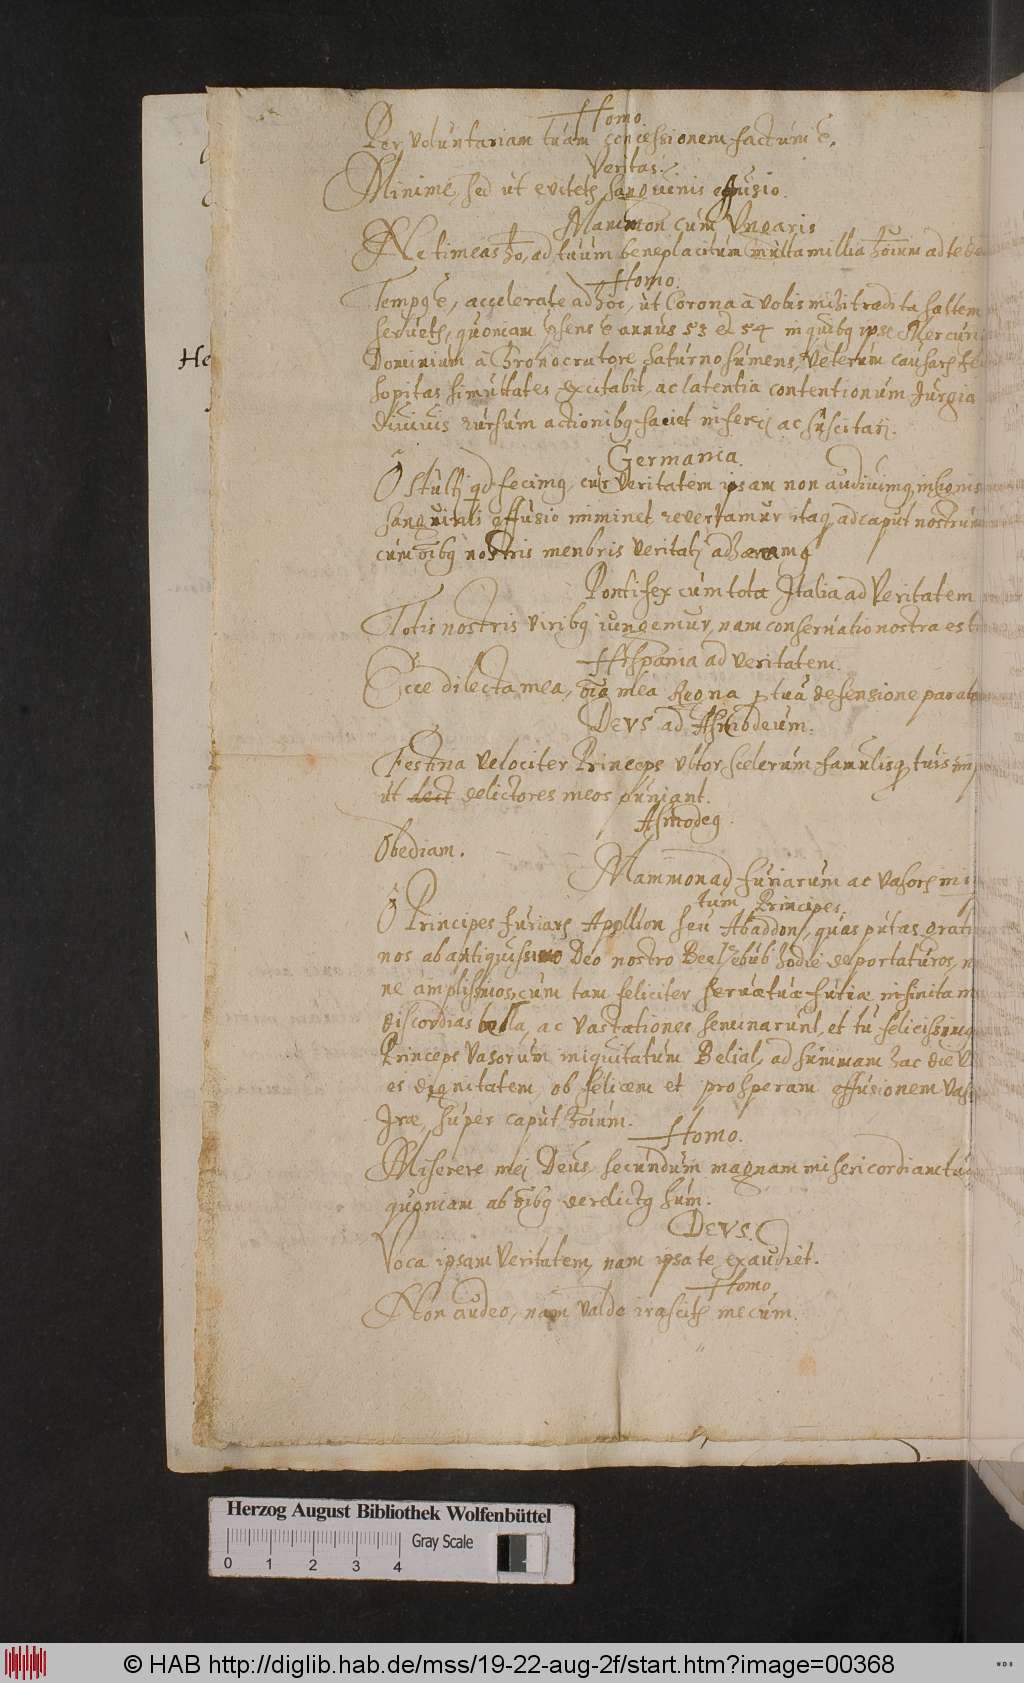 Homo.
Per voluntariam tuam concessionem factum ē.
Veritas.
Minime, sed ut evitetr sanguinis effusio.
Mammon cum Vngaris
Ne timeas ho, ad tuum beneplacitum multa millia hoīum ad te
Homo.
Tempq ē, accelerate ad hoc, ut Corona a vobis mihi tradita saltem
servetr, quoniam ē annus 53 et 54 in quibq ipse Mercuri
He
Dominium a Chronocratore saturno sumens, veterum
sopitas simultates excitabit, ac latentia contentionum Jurgia
divivis rursum actionibq faciet inferij ac suscitari.
Germania.
O stulti qd fecimq, cur veritatem ipsam non audivimq,
sanguinis effusio iminet revertamur itaq ad caput nostrum
cum oībq nostris menbris veritati
Pontifex cum tota Italia ad Veritatem
Totis nostris viribq iungemur, nam conservatio nostra est
Hispania ad veritatem.
Ecce dilecta mea, oīa mea Regna p tua defensione parata
DEVS ad Asmodeum.
Festina velociter Princeps ultor scelerum famulisq tuis
ut dect delictores meos puniant.
Asmodeq.
Obediam.
Mammon ad furiarum ac vasorum
tum Principes.
O Principes furiarum Apollion seu Abaddon, quas putas grati
nos ab antiquissimo Deo nostro Beelzebub hodie deportaturos,
ne amplissimos, cum tam feliciter servæ tuæ futiæ infinitam
discordias bella, ac vastationes seminarunt, et tu felicissimq
Princeps vasorum iniquitatum Belial, ad summam hac die
es dignitatem, ob felicem et prosperam effusionem
Iræ, super caput hoīum.
Homo.
Miserere mei Deus, secundum magnam misericordiam
quoniam ab oībq derelictq sum.
DEVS.
Voca ipsam Veritatem, nam ipsa te exaudiet.
Homo
Non audeo, nam valde irascitr mecum.
Herzog August Bibliothek Wolfenbüttel
Gray Scale
0 1 2 3 4
© HAB http://diglib.hab.de/mss/19-22-aug-2f/start.htm?image=00368